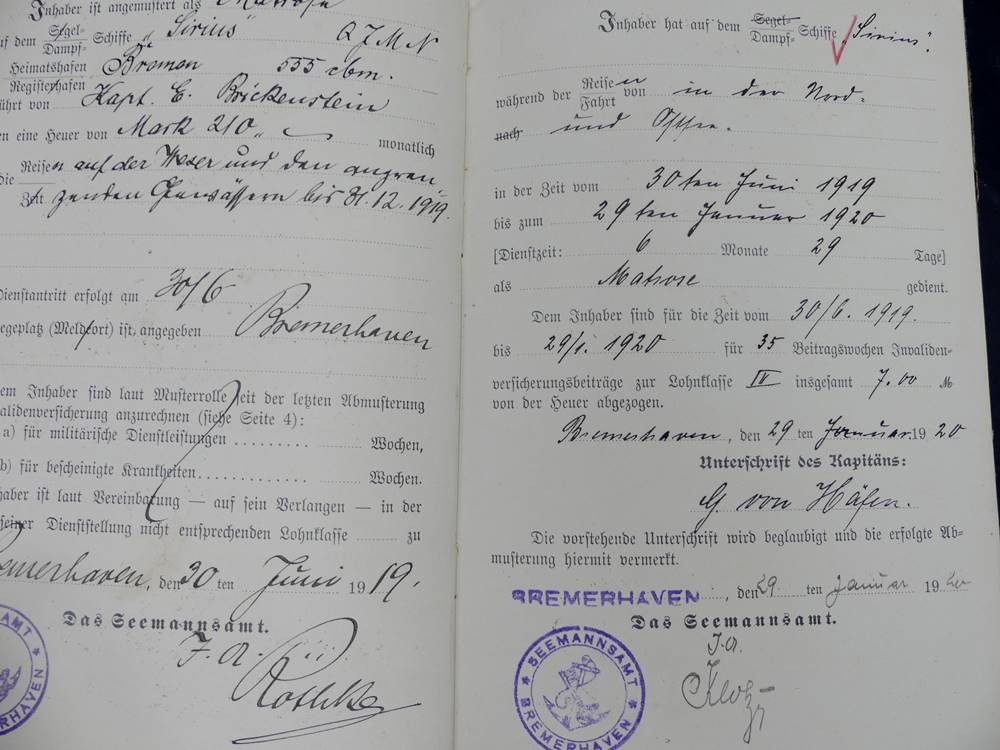 Inhaber ist angemustert als Matrose
auf dem Segel-
Dampf- Schiffe „Sirius" QJMN
Heimatshafen
Registerhafen Bremen 555 cbm.
führt von Kapt. E. Brickenstein
en eine Heuer von Mark 210 „ monatlich
die Reisen auf der Weser und den angren-
Zeit zenden Gewässern bis 31.12.1919.
Dienstantritt erfolgt am 30/6
egeplatz (Meldeort) ist angegeben Bremerhaven
em Inhaber sind laut Musterrolle seit der letzten Abmusterung
alidenversicherung anzurechnen (siehe Seite 4):
a) für militärische Dienstleistungen ......... Wochen,
b) für bescheinigte Krankheiten ............ Wochen.
haber ist laut Vereinbarung — auf sein Verlangen — in der
seiner Dienststellung nicht entsprechenden Lohnklasse zu
emerhaven, den 30 ten Juni 1919.
Das Seemannsamt.
I. A.
AMT
ERHAVEN
Inhaber hat auf dem Segel-
Dampf- Schiffe „Sirius".
während der Reisen
Fahrt von in der Nord-
nach und Ostsee.
in der Zeit vom 30ten Juni 1919
bis zum 29ten Januar 1920
[Dienstzeit: 6 Monate 29 Tage]
als Matrose gedient.
Dem Inhaber sind für die Zeit vom 30/6. 1919.
bis 29/1. 1920 für 35 Beitragswochen Invaliden-
versicherungsbeiträge zur Lohnklasse IV insgesamt 7.00 M
von der Heuer abgezogen.
Bremerhaven, den 29 ten Januar 1920
Unterschrift des Kapitäns:
G von Häfen.
Die vorstehende Unterschrift wird beglaubigt und die erfolgte Ab-
musterung hiermit vermerkt.
BREMERHAVEN, den 29. ten Januar 1920
Das Seemannsamt.
I. A.
SEEMANNSAMT
BREMERHAVEN